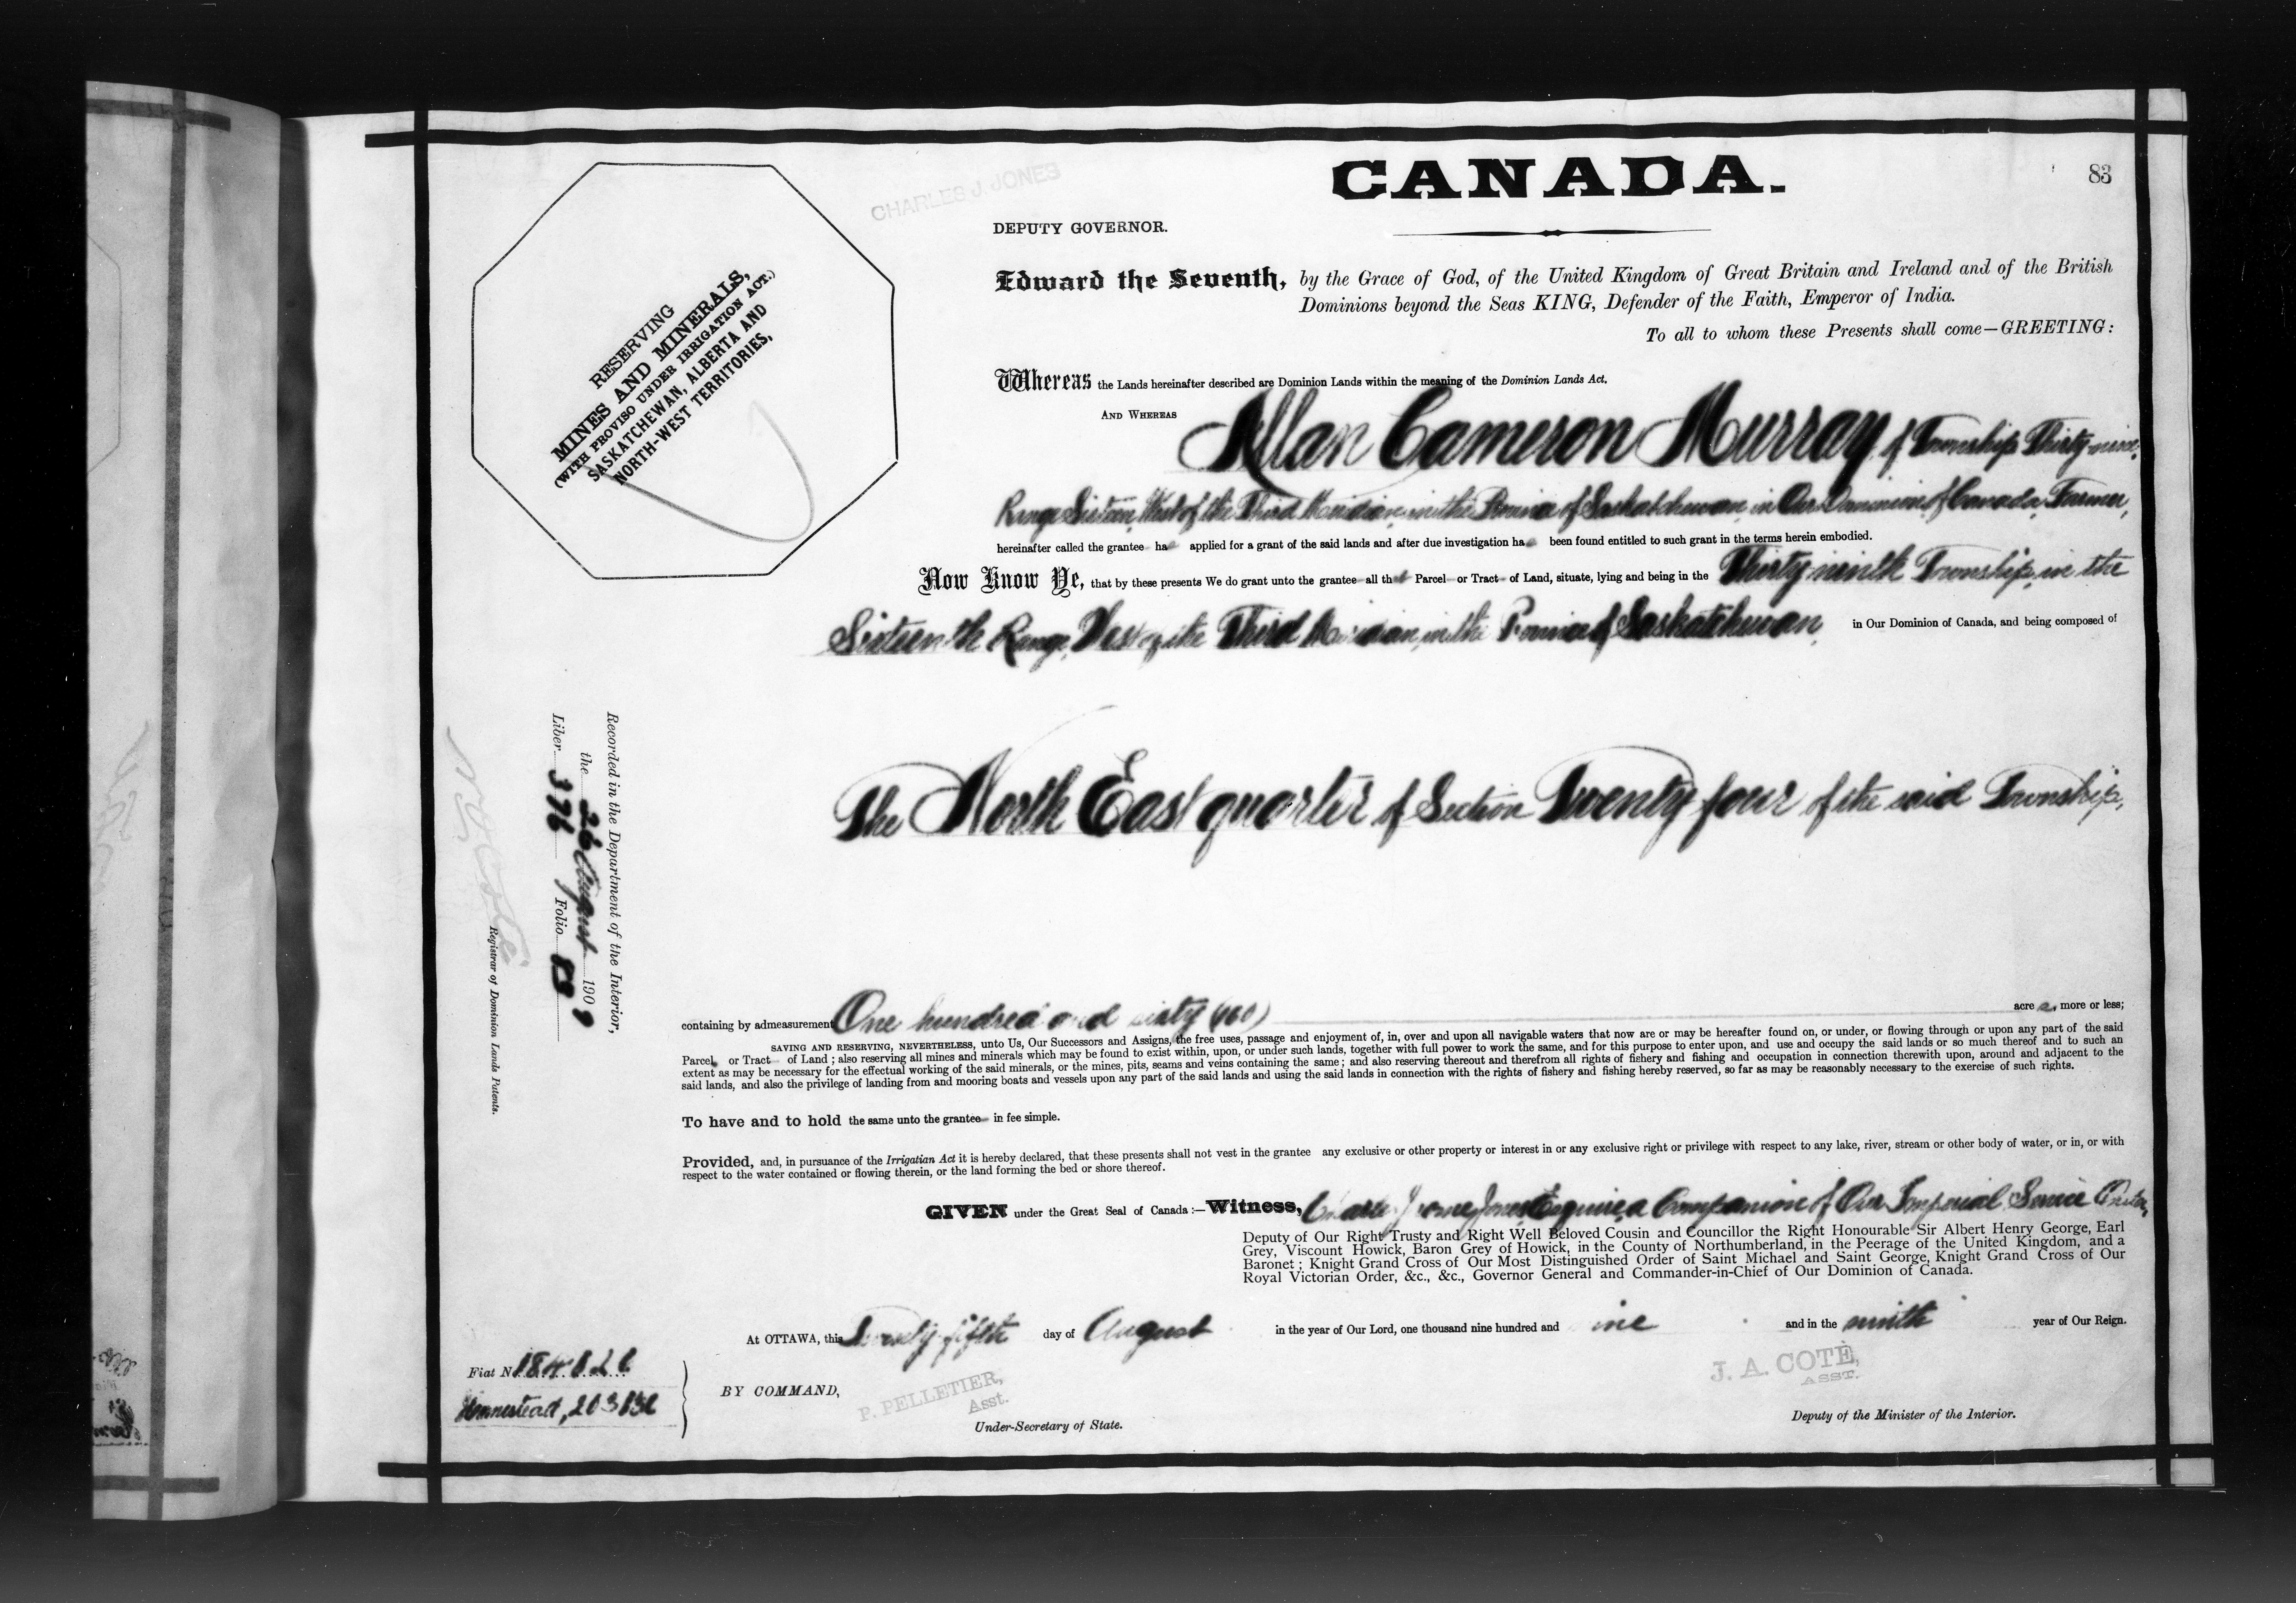 CHARLES J. JONES
CANADA.
83
DEPUTY GOVERNOR.
Edward the Seventh, by the Grace of God, of the United Kingdom of Great Britain and Ireland and of the British
Dominions beyond the Seas KING, Defender of the Faith, Emperor of India.
To all to whom these Presents shall come—GREETING:
RESERVING
MINES AND MINERALS,
(WITH PROVISO UNDER IRRIGATION ACT.)
SASKATCHEWAN, ALBERTA AND
NORTH-WEST TERRITORIES,
Whereas the Lands hereinafter described are Dominion Lands within the meaning of the Dominion Lands Act.
AND WHEREAS Allan Cameron Murray of Township Thirty-nine,
Range Sixteen, West of the Third Meridian, in the Province of Saskatchewan, in Our Dominion of Canada, Farmer,
hereinafter called the grantee ha applied for a grant of the said lands and after due investigation ha been found entitled to such grant in the terms herein embodied.
Now Know Ye, that by these presents We do grant unto the grantee all that Parcel or Tract of Land, situate, lying and being in the Thirty-ninth Township, in the
Sixteenth Range, West of the Third Meridian, in the Province of Saskatchewan, in Our Dominion of Canada, and being composed of
The North East quarter of Section Twenty four of the said Township,
containing by admeasurement One hundred and sixty (160) acres, more or less;
SAVING AND RESERVING, NEVERTHELESS, unto Us, Our Successors and Assigns, the free uses, passage and enjoyment of, in, over and upon all navigable waters that now are or may be hereafter found on, or under, or flowing through or upon any part of the said
Parcel or Tract of Land ; also reserving all mines and minerals which may be found to exist within, upon, or under such lands, together with full power to work the same, and for this purpose to enter upon, and use and occupy the said lands or so much thereof and to such an
extent as may be necessary for the effectual working of the said minerals, or the mines, pits, seams and veins containing the same ; and also reserving thereout and therefrom all rights of fishery and fishing and occupation in connection therewith upon, around and adjacent to the
said lands, and also the privilege of landing from and mooring boats and vessels upon any part of the said lands and using the said lands in connection with the rights of fishery and fishing hereby reserved, so far as may be reasonably necessary to the exercise of such rights.
To have and to hold the same unto the grantee in fee simple.
Provided, and, in pursuance of the Irrigatian Act it is hereby declared, that these presents shall not vest in the grantee any exclusive or other property or interest in or any exclusive right or privilege with respect to any lake, river, stream or other body of water, or in, or with
respect to the water contained or flowing therein, or the land forming the bed or shore thereof.
GIVEN under the Great Seal of Canada :—Witness, Charles Jones Esquire, a Companion of Our Imperial Service Order,
Deputy of Our Right Trusty and Right Well Beloved Cousin and Councillor the Right Honourable Sir Albert Henry George, Earl
Grey, Viscount Howick, Baron Grey of Howick, in the County of Northumberland, in the Peerage of the United Kingdom, and a
Baronet ; Knight Grand Cross of Our Most Distinguished Order of Saint Michael and Saint George, Knight Grand Cross of Our
Royal Victorian Order, &c., &c., Governor General and Commander-in-Chief of Our Dominion of Canada.
At OTTAWA, this Twenty-fifth day of August in the year of Our Lord, one thousand nine hundred and nine and in the ninth year of Our Reign.
Fiat No
Homestead,
BY COMMAND,
P. PELLETIER,
Asst.
Under-Secretary of State.
J. A. COTÉ,
ASST.
Deputy of the Minister of the Interior.
Recorded in the Department of the Interior,
the 26 August 1909
Liber 376 Folio 83
Registrar of Dominion Lands Patents.